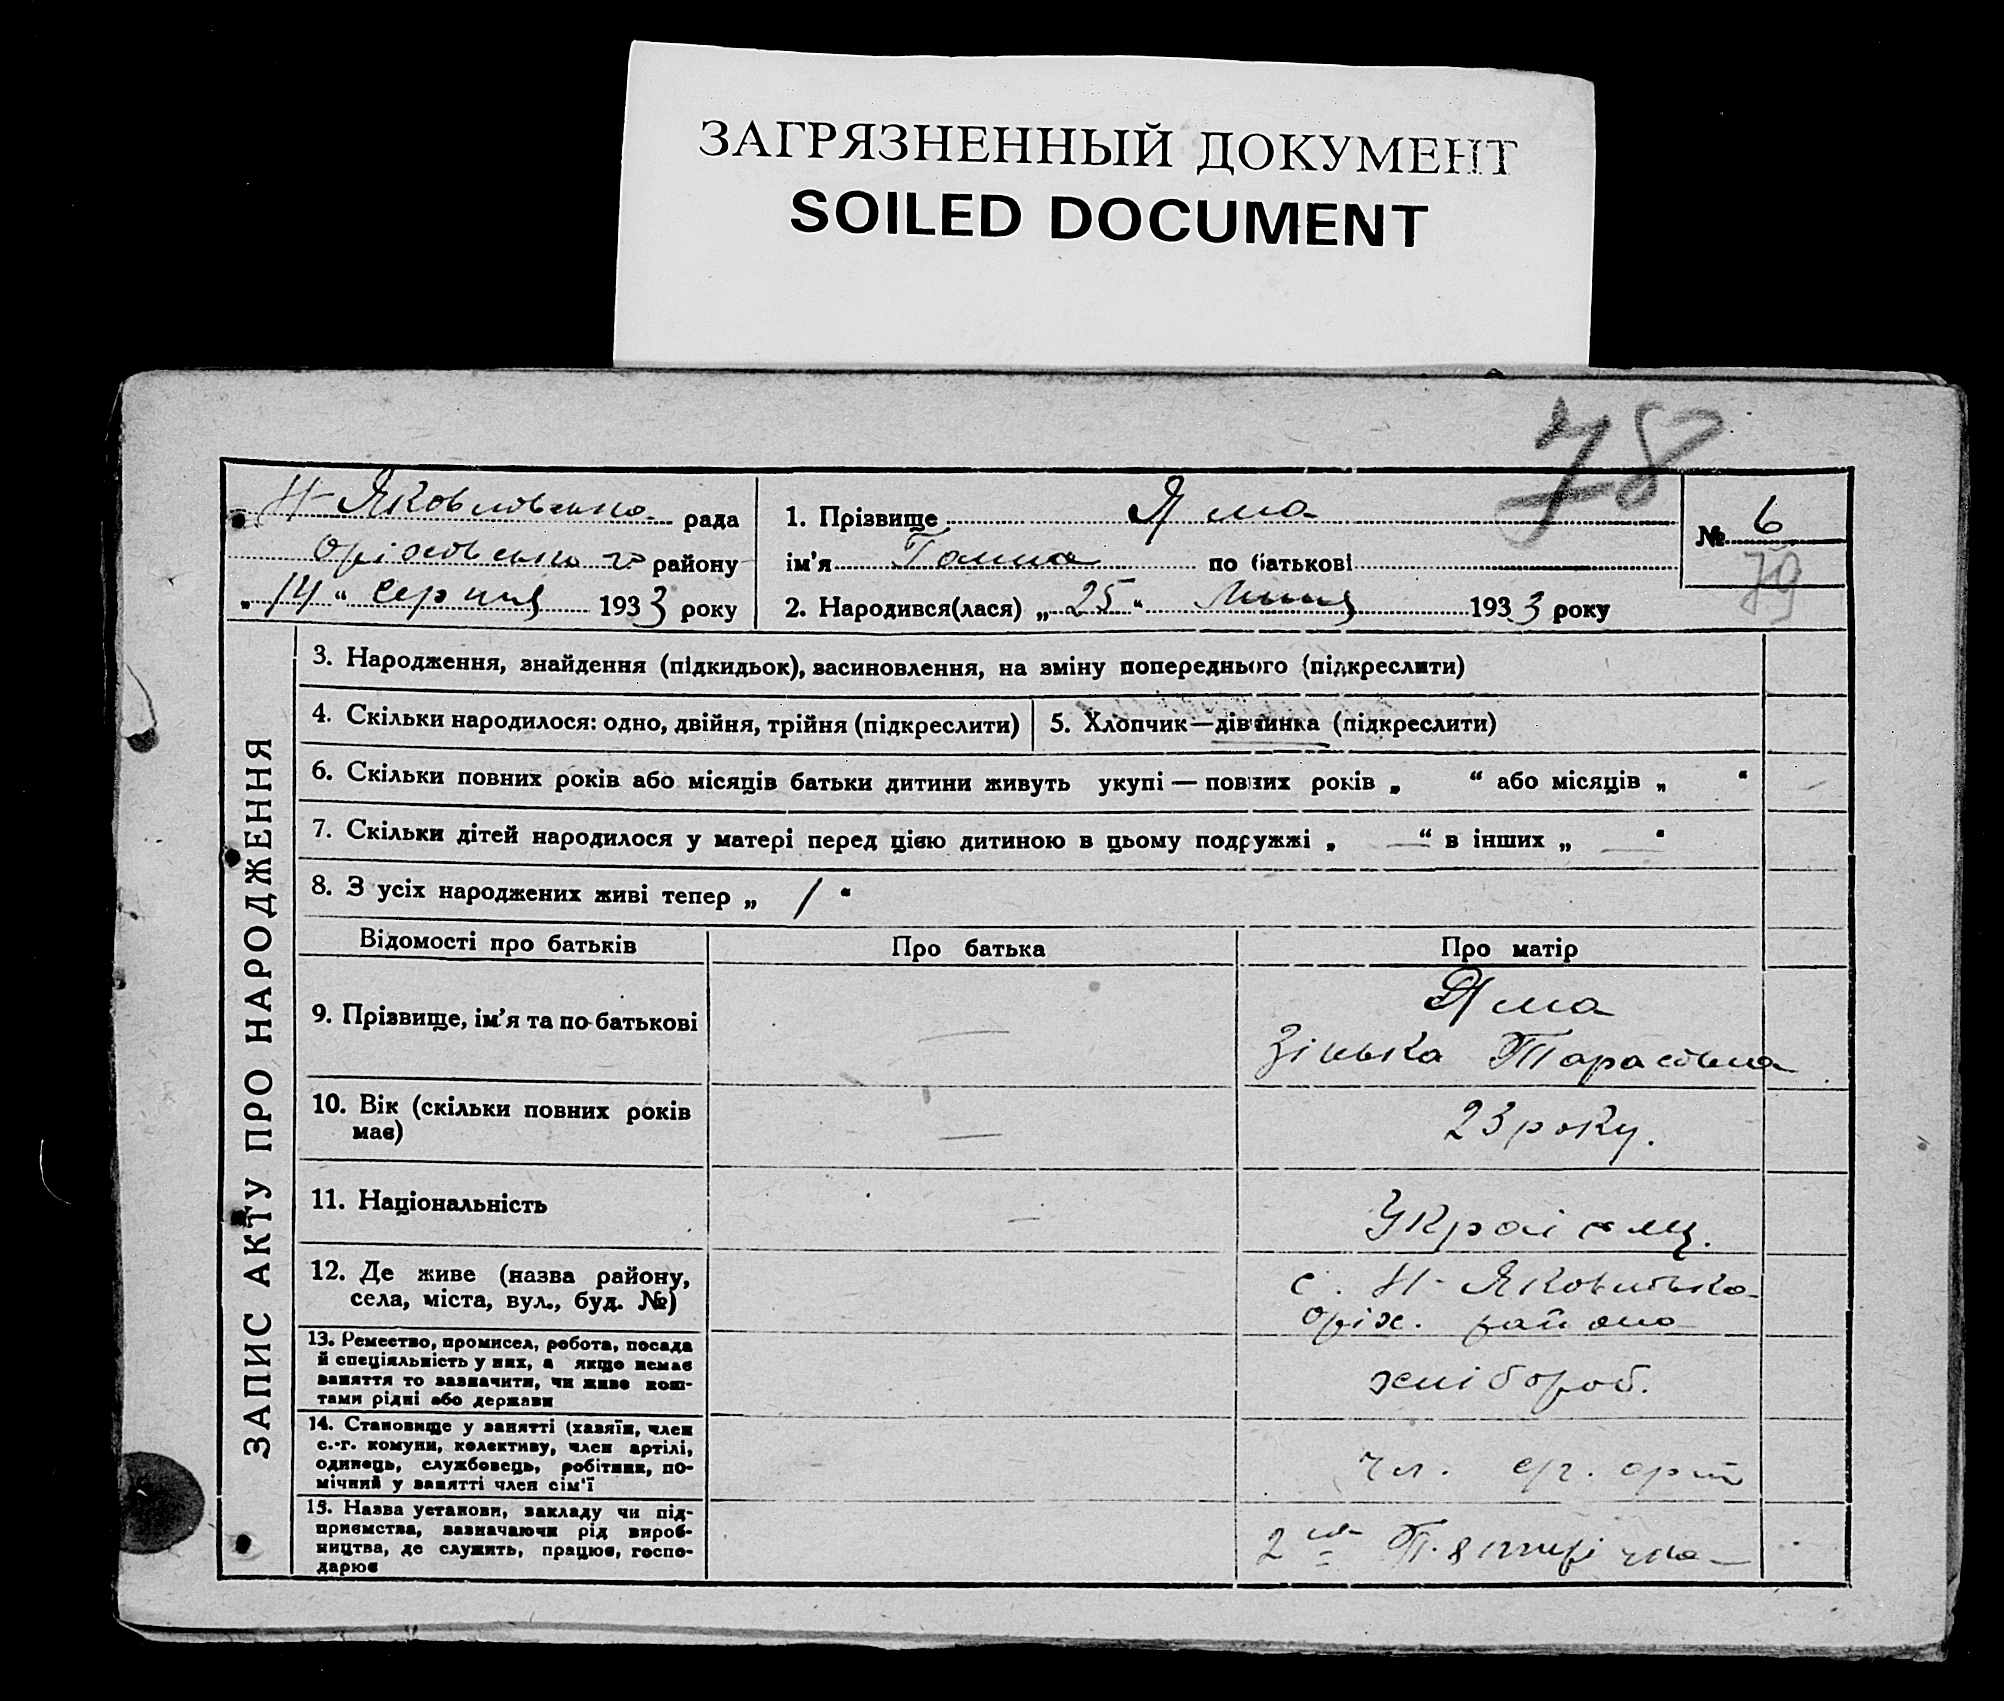 ЗАГРЯЗНЕННЫЙ ДОКУМЕНТ
SOILED DOCUMENT
78
Н-Яковлівська рада
Оріхівського району
„14“ серпня 1933 року
1. Прізвище Яма
ім'я Галина по батькові
2. Народився(лася) „25“ Липня 1933 року
№ 6
79
ЗАПИС АКТУ ПРО НАРОДЖЕННЯ
3. Народження, знайдення (підкидьок), васиновлення, на зміну попереднього (підкреслити)
4. Скільки народилося: одно, двійня, трійня (підкреслити)
5. Хлопчик—дівчинка (підкреслити)
6. Скільки повних років або місяців батьки дитини живуть укупі — повних років „ “ або місяців „ “
7. Скільки дітей народилося у матері перед цією дитиною в цьому подружжі „ — “ в інших „ — “
8. З усіх народжених живі тепер „ 1 “
Відомості про батьків
Про батька
Про матір
9. Прізвище, ім'я та по-батькові
—
Яма
Зінька Тарасівна
10. Вік (скільки повних років
має)
—
23 року.
11. Національність
—
Україн
12. Де живе (назва району,
села, міста, вул., буд. №)
с. Н-Яковлівка
Оріх. району
13. Ремество, промисел, робота, посада
й спеціяльність у них, а якщо немає
заняття то зазначити, чи живе кош-
тами рідні або держави
хлібороб.
14. Становище у занятті (хазяїн, член
с.-г. комуни, колективу, член артілі,
одинець, службовець, робітник, по-
мічний у занятті член сім'ї
чл. с/г. арт
15. Назва установи, закладу чи під-
приємства, зазначаючи рід вироб-
ництва, де служить, працює, госпо-
дарює
2га П'ятирічка